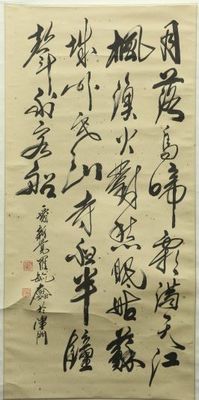 月落烏啼霜滿天江
楓漁火對愁眠姑蘇
城外寒山寺夜半鐘
聲到客船
愛新覺羅毓 於津門